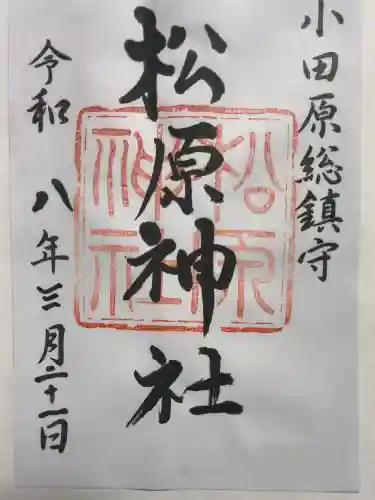 小田原総鎮守
松原神社
松原
神社
令和 八年三月二十一日